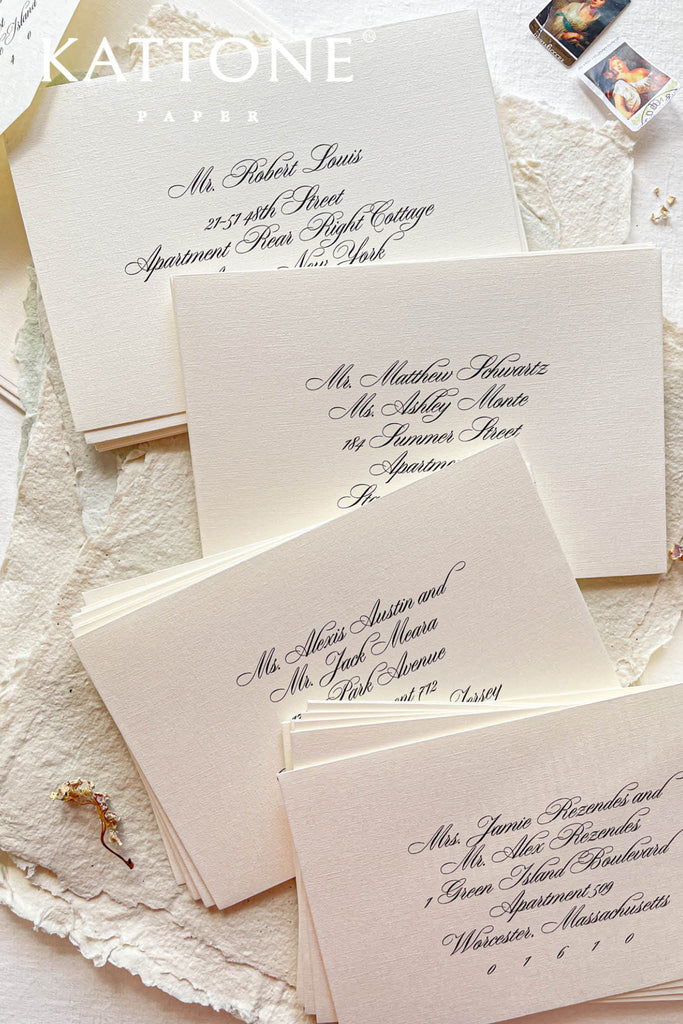 Island
4 0
KATTONE®
PAPER
Mr. Robert Louis
21-51 48th Street
Apartment Rear Right Cottage
New York
Mr. Matthew Schwartz
Ms. Ashley Monte
184 Summer Street
Ms. Alexis Austin and
Mr. Jack Meara
Park Avenue
712
Jersey
Mrs. Jamie Rezendes and
Mr. Alex Rezendes
1 Green Island Boulevard
Apartment 509
Worcester, Massachusetts
0 1 6 1 0